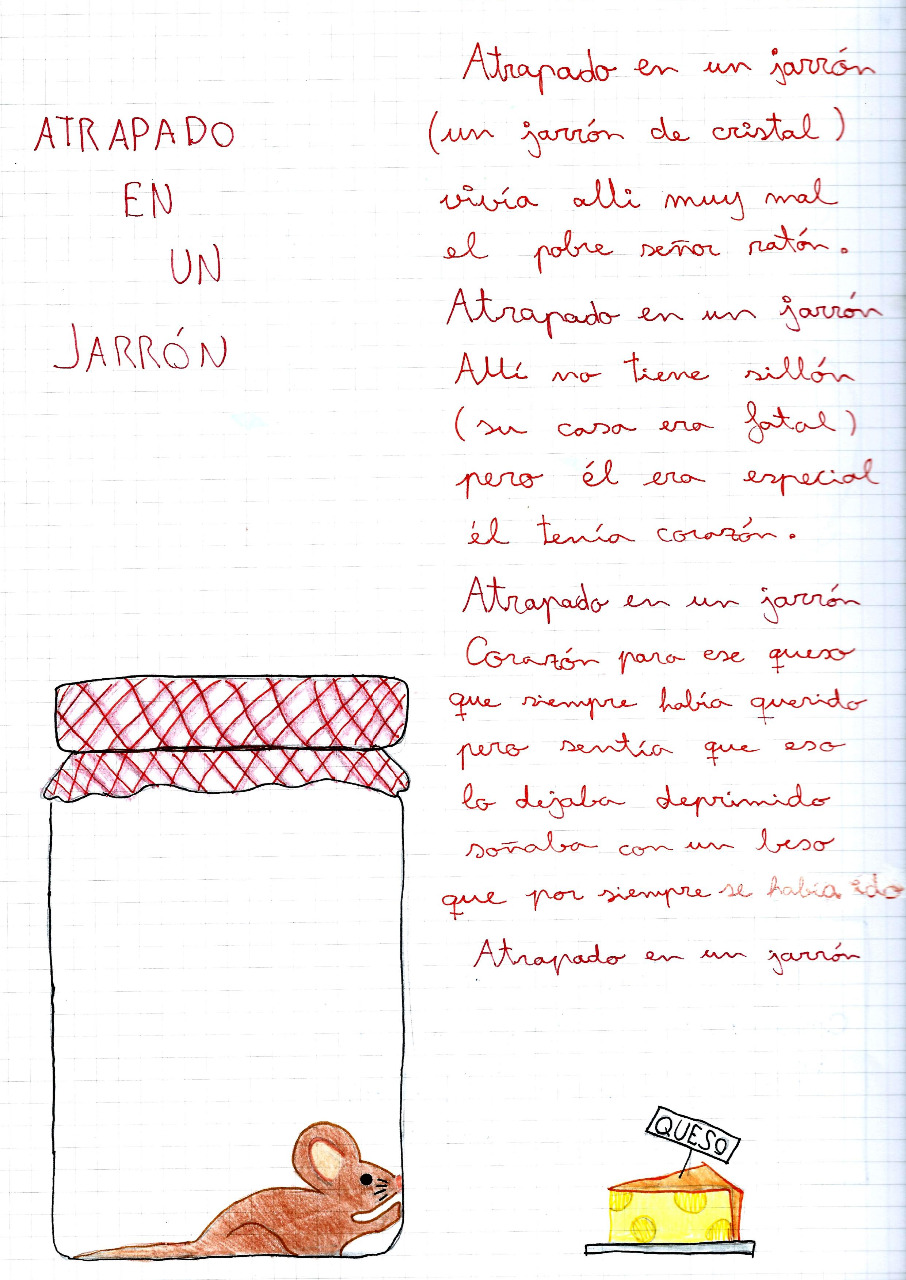 ATRAPADO
EN
UN
JARRÓN
Atrapado en un jarrón
(un jarrón de cristal)
vivía alli muy mal
el pobre señor ratón.
Atrapado en un jarrón
Allí no tiene sillón
(su casa era fatal)
pero él era especial
él tenía corazón.
Atrapado en un jarrón
Corazón para ese queso
que siempre había querido
pero sentía que eso
lo dejaba deprimido
soñaba con un beso
que por siempre se había ido
Atrapado en un jarrón
QUESO